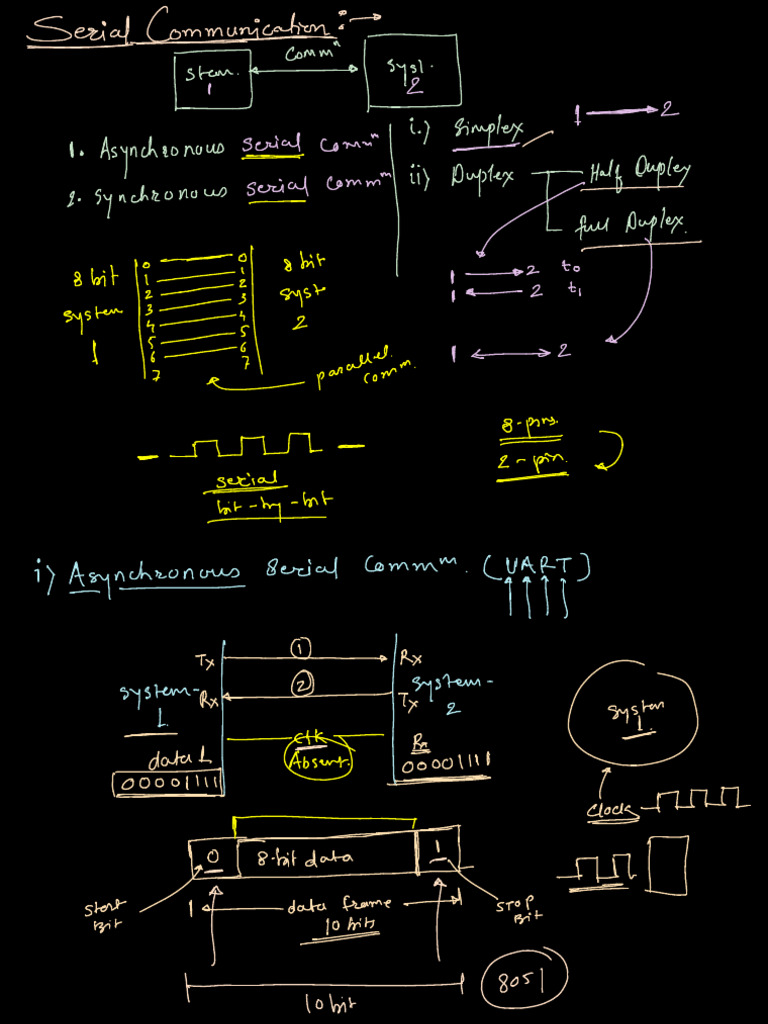 Serial Communication :→
Commⁿ
Stem. 1
Syst. 2
1. Asynchronous Serial Commⁿ
2. Synchronous Serial Commᵐ
i.) Simplex
1 → 2
ii) Duplex
Half Duplex
full Duplex.
1 → 2 t₀
1 ← 2 t₁
1 ↔ 2
8 bit
system
1
0 0
1 1
2 2
3 3
4 4
5 5
6 6
7 7
8 bit
syst
2
parallel
comm.
8-pins.
2-pin.
serial
bit-by-bit
i) Asynchronous Serial Commᵐ. (UART)
Tx 1 Rx
Rx 2 Tx
system-
1.
system-
2
clk
Absent.
data 1
00001111
Rx
00001111
System
1.
Clock
0 8-bit data 1
Start
Bit
data frame
10 bits
STOP
Bit
10 bit
8051